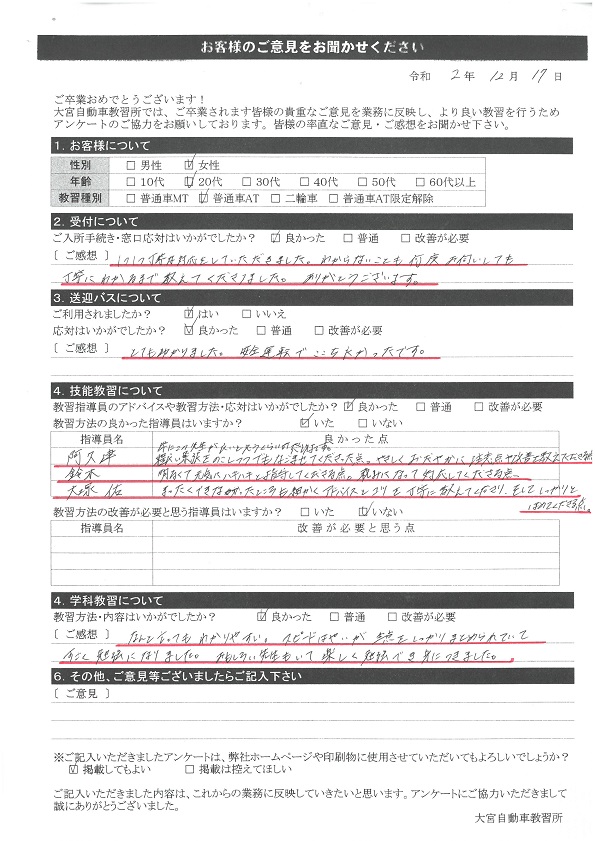 お客様のご意見をお聞かせください
令和 2年 12月 17日
ご卒業おめでとうございます！
大宮自動車教習所では、ご卒業されます皆様の貴重なご意見を業務に反映し、より良い教習を行うため
アンケートのご協力をお願いしております。皆様の率直なご意見・ご感想をお聞かせ下さい。
1. お客様について
性別 □ 男性 ☑ 女性
年齢 □ 10代 ☑ 20代 □ 30代 □ 40代 □ 50代 □ 60代以上
教習種別 □ 普通車MT ☑ 普通車AT □ 二輪車 □ 普通車AT限定解除
2. 受付について
ご入所手続き・窓口応対はいかがでしたか？ ☑ 良かった □ 普通 □ 改善が必要
[ ご感想 ] 丁寧な対応をしていただきました。わからないことも何度お伺いしても
丁寧にわかるまで教えてくださりました。ありがとうございます。
3. 送迎バスについて
ご利用されましたか？ ☑ はい □ いいえ
応対はいかがでしたか？ ☑ 良かった □ 普通 □ 改善が必要
[ ご感想 ] とても助かりました。安全運転でここちよかったです。
4. 技能教習について
教習指導員のアドバイスや教習方法・応対はいかがでしたか？ ☑ 良かった □ 普通 □ 改善が必要
教習方法の良かった指導員はいますか？ ☑ いた □ いない
指導員名 良かった点
阿久津
鈴木 明るくて
大塚 佑 まったくできなかったところも細かくアドバイスとコツを丁寧に教えてくださり、そしてしっかりと
ほめてくださる点。
教習方法の改善が必要と思う指導員はいますか？ □ いた ☑ いない
指導員名 改善が必要と思う点
4. 学科教習について
教習方法・内容はいかがでしたか？ ☑ 良かった □ 普通 □ 改善が必要
[ ご感想 ] なんと言ってもわかりやすい。スピードはやいが要点をしっかりまとめられていて
すごく勉強になりました。おもしろい先生もいて楽しく勉強でき身につきました。
6. その他、ご意見等ございましたらご記入下さい
[ ご意見 ]
※ご記入いただきましたアンケートは、弊社ホームページや印刷物に使用させていただいてもよろしいでしょうか？
☑ 掲載してもよい □ 掲載は控えてほしい
ご記入いただきました内容は、これからの業務に反映していきたいと思います。アンケートにご協力いただきまして
誠にありがとうございました。
大宮自動車教習所